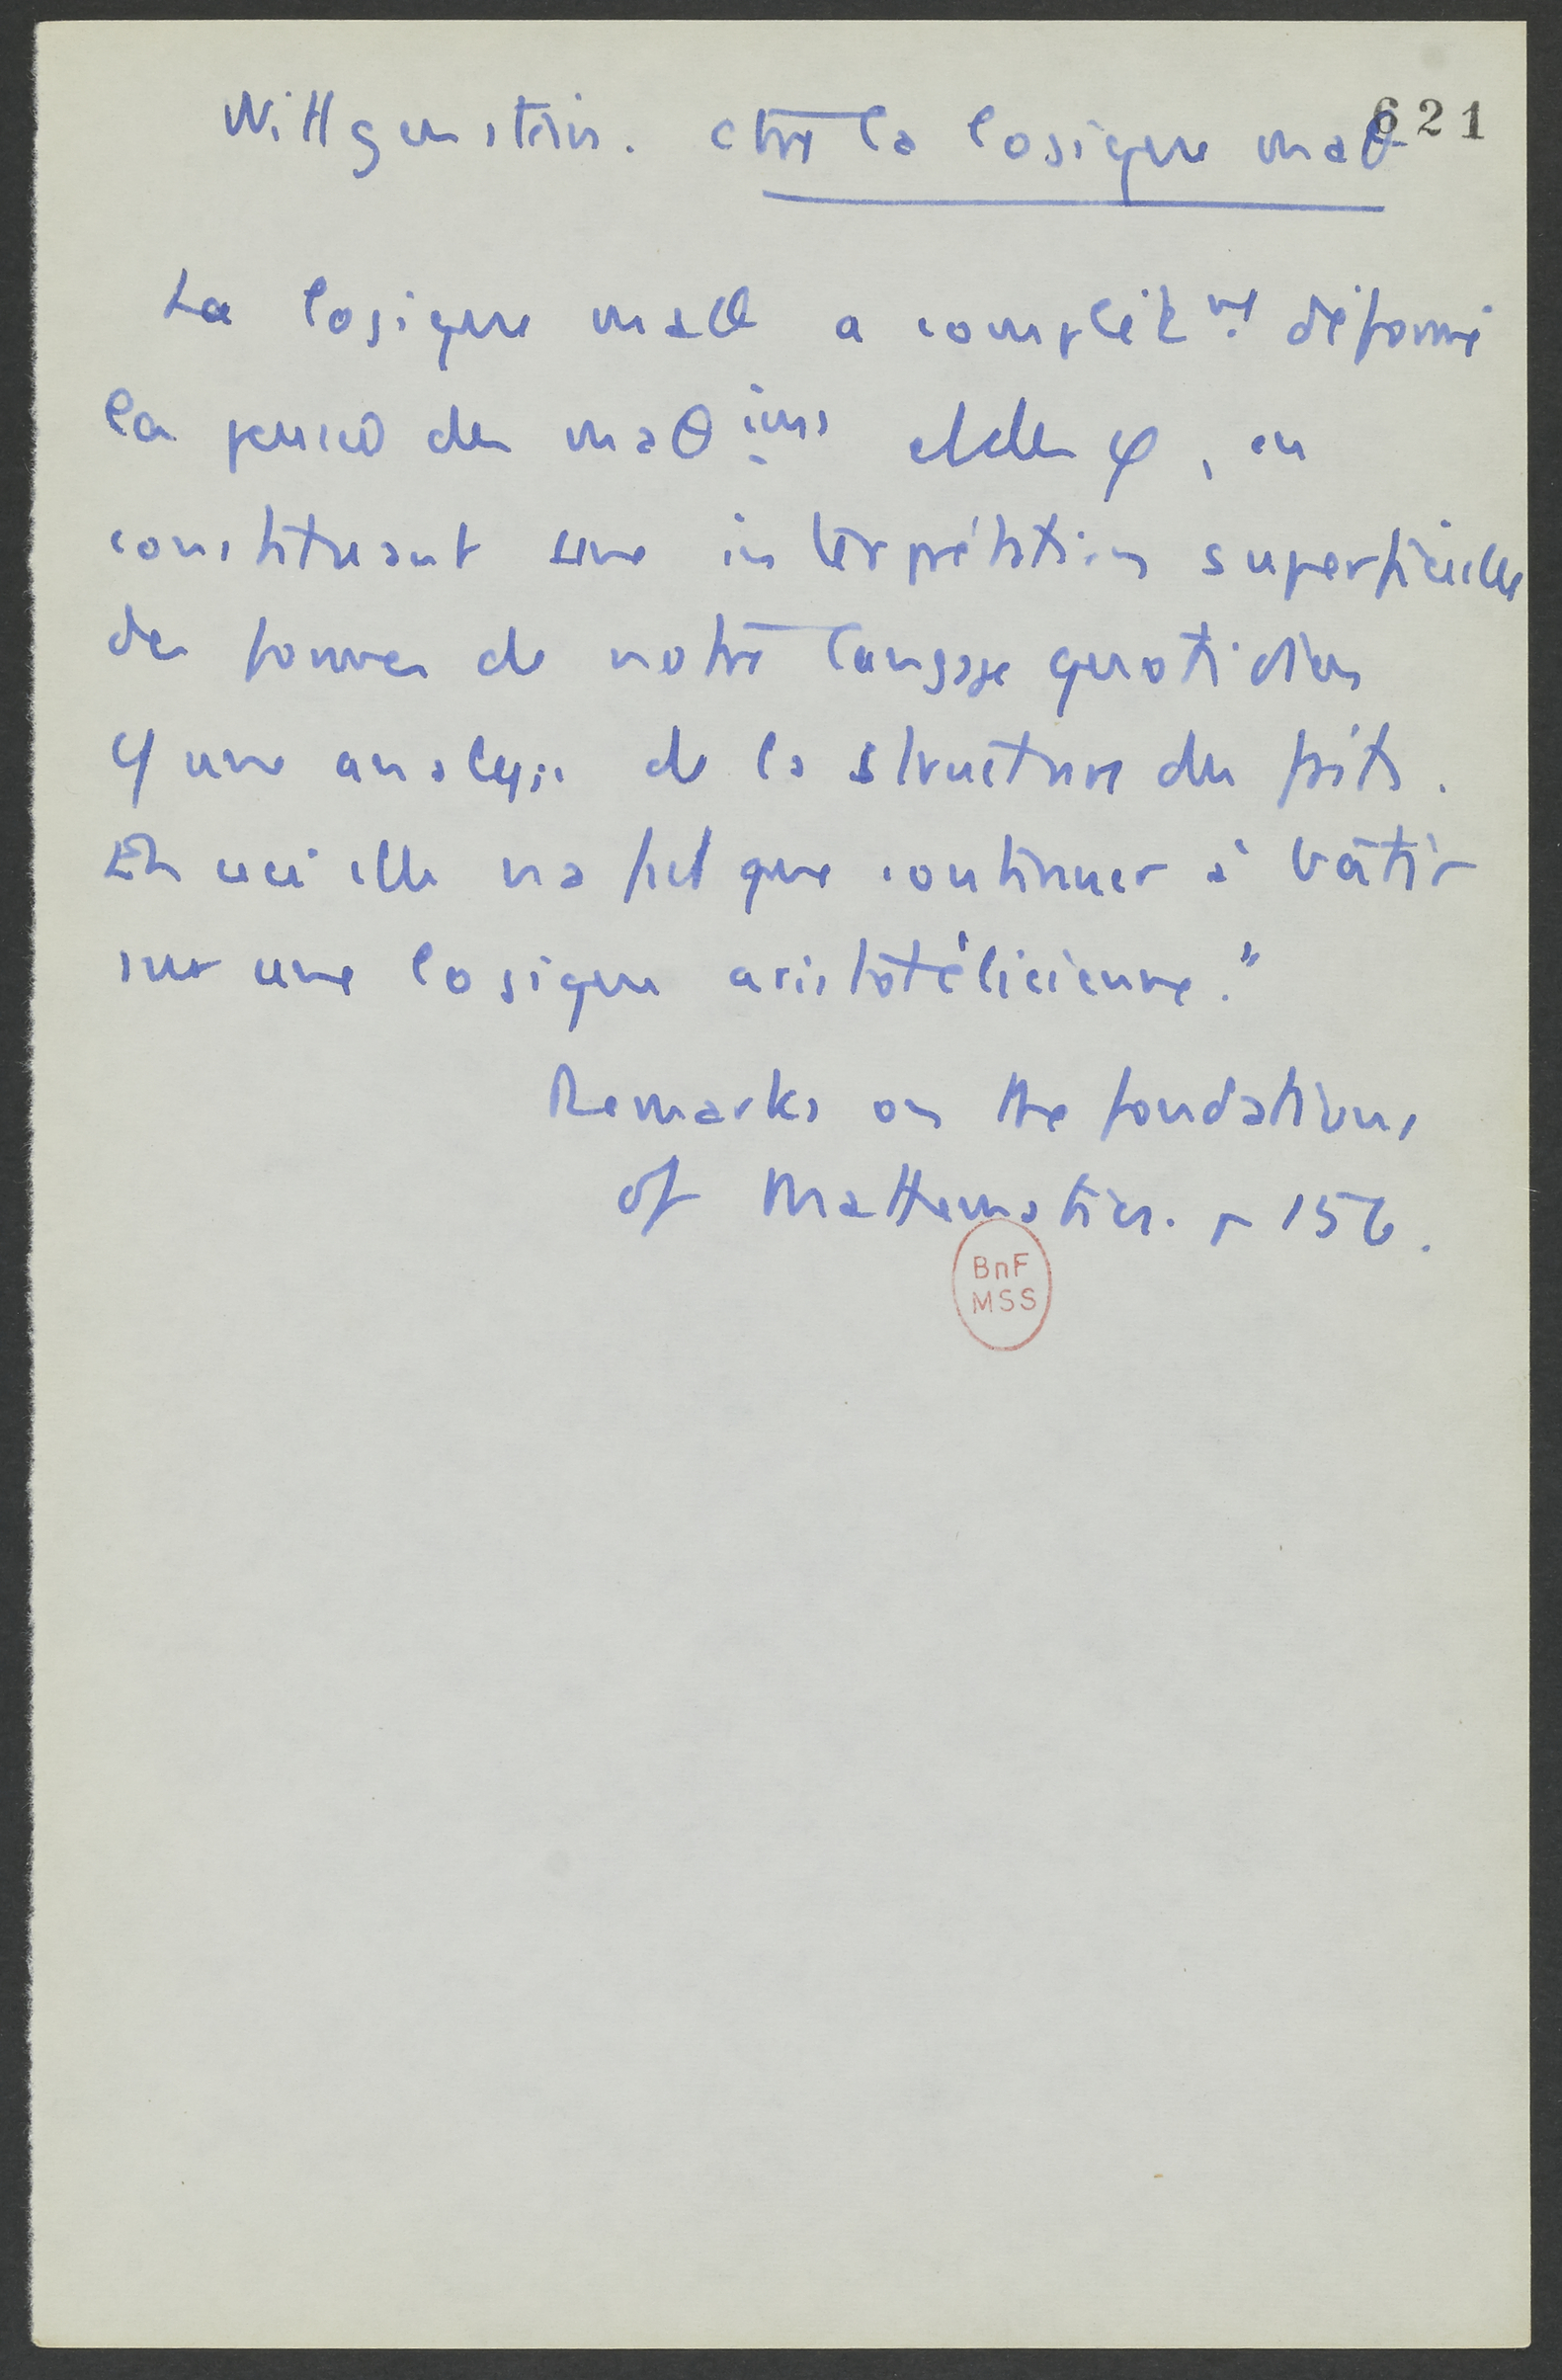 621
Wittgenstein. ctre la logique maθ
La logique maθ a complètmt déformé
la pensée des maθiens et des φ, en
constituant une interprétation superficielle
des formes de notre langage quotidien
cf une analyse de la structure des faits.
En ceci elle n'a fait que continuer à bâtir
sur une logique aristotélicienne."
Remarks on the foundations
of Mathematics. p 156.
BnF
MSS